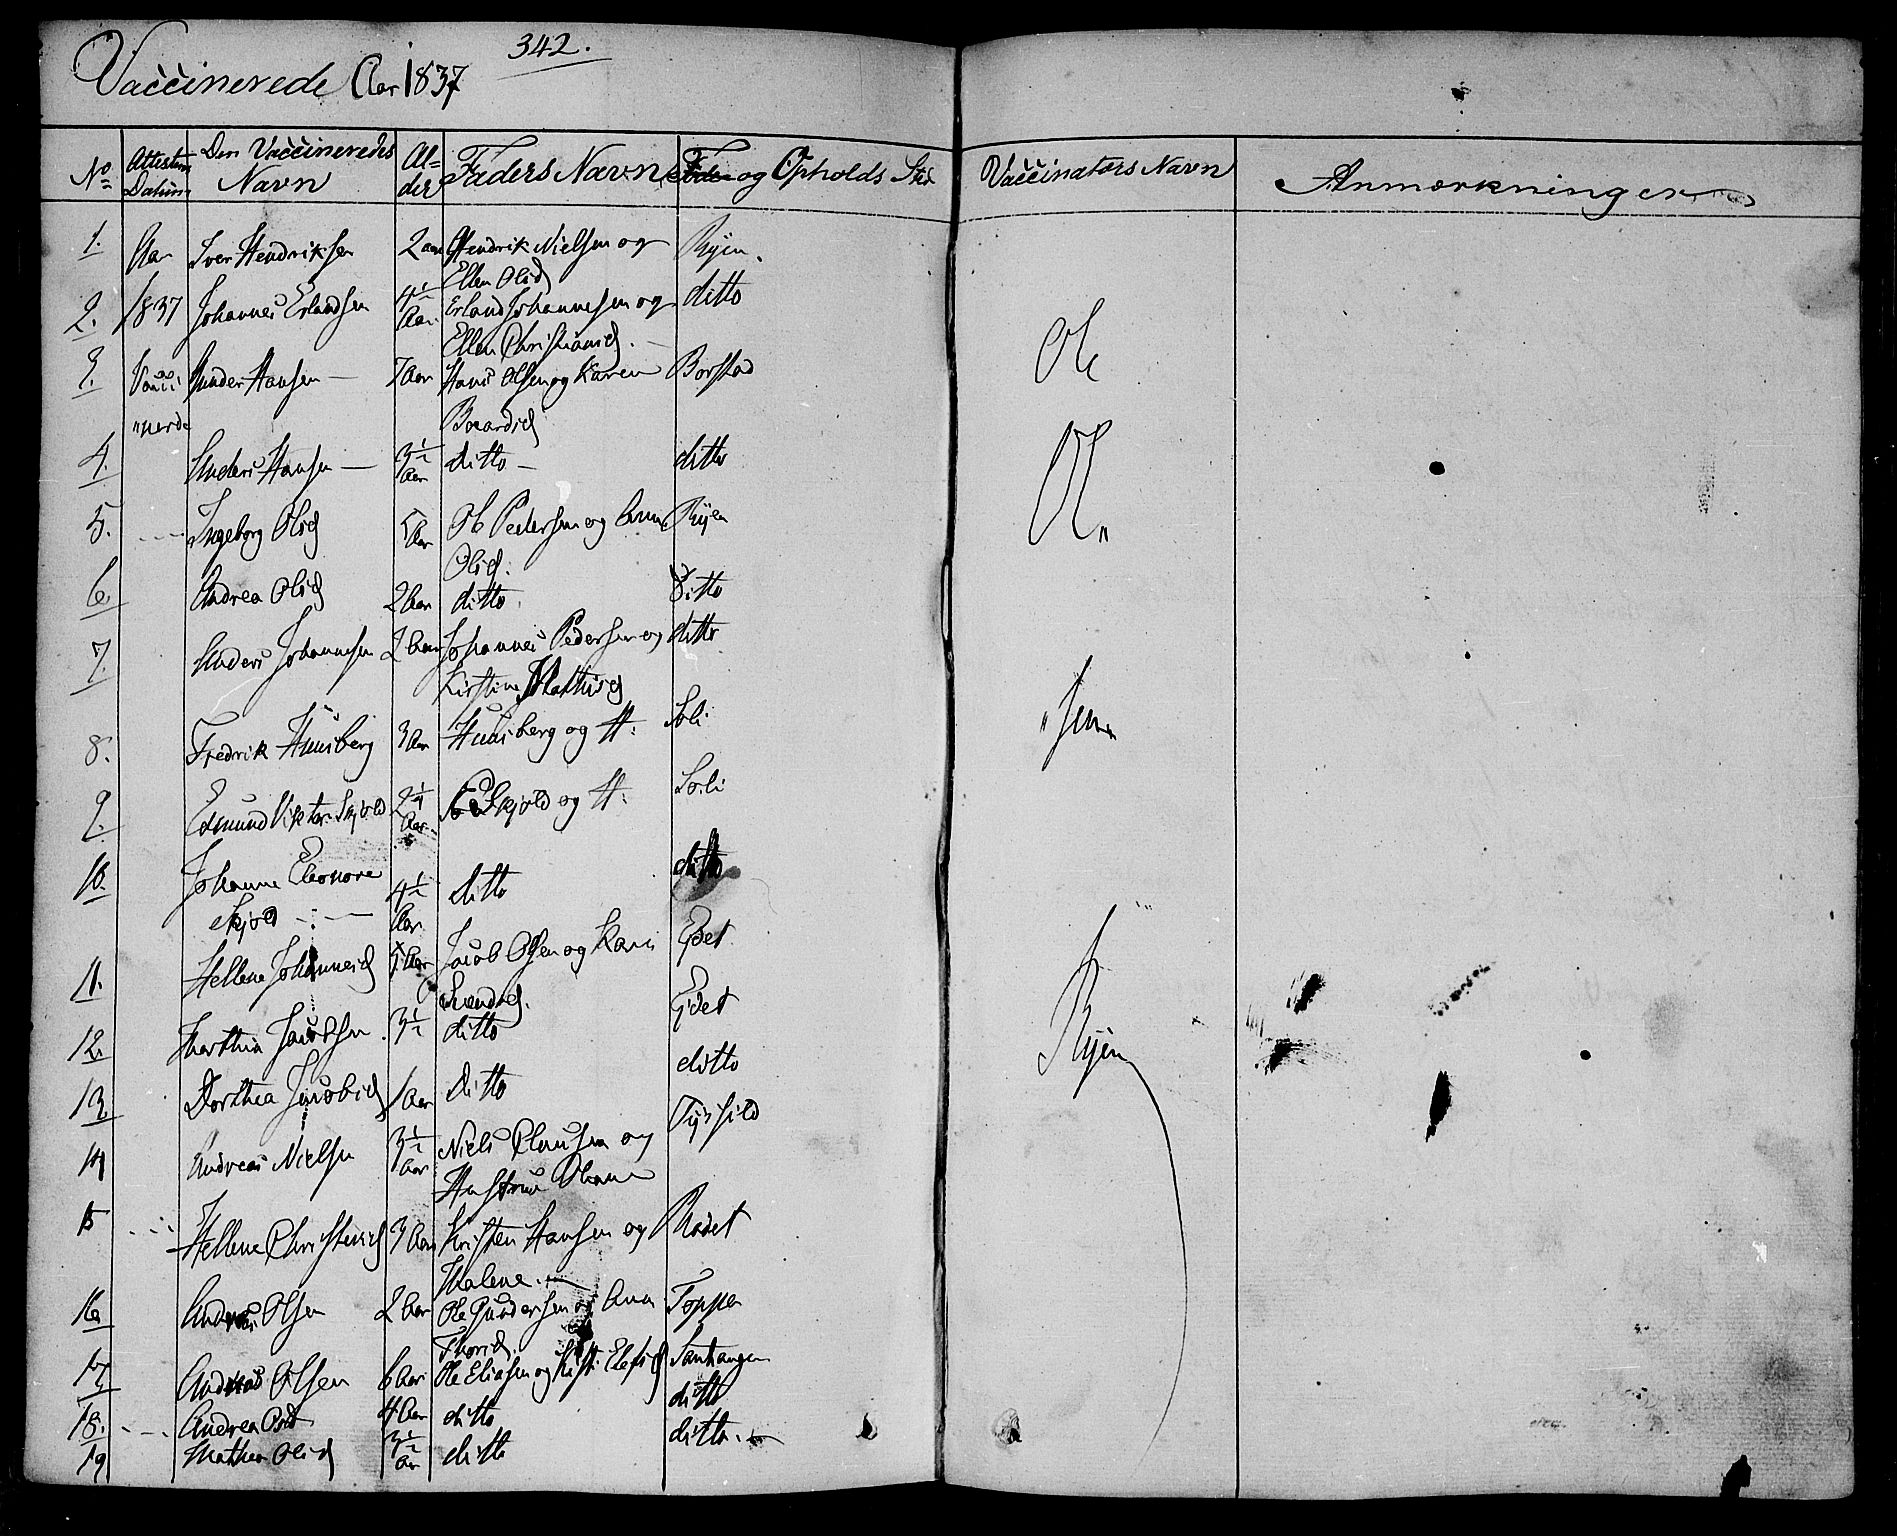 342.
Vaccinerede Aar 1837
No Attestens Datum Den Vaccineredes Navn Alder Faders Navn og Opholds Sted Vaccinators Navn Anmærkninger
1. Aar Iver Hendriksen 2 aar Hendrik Nielsen og Ryen.
Ellen Olsd
2. 1837 Johannes Erlandsen 4½ Aar Erland Johannesen og ditto
Ellen Christiansd.
3. Vacci Gunder Hansen — 7 Aar Hans Olsen og Karen Borstad Ole
"nerde Baardsd
4. Anders Hansen — 3½ Aar ditto — ditto Ol"
5. Ingeborg Olsd 5 Aar Ole Pedersen og Anne Ryen
Olsd.
6. Andrea Olsd 2 Aar ditto. ditto
7. Anders Johannesen 2 Aar Johannes Pedersen og ditto
Kirstine Mathisd
8. Fredrik Huusberg 3 Aar Huusberg og H. Soli "sen
9. Edmund Viktor Skjold 2¼ Aar Skjold og H. Soli
10. Johanne Eleonore 4½ Aar ditto ditto
Skjold
11. Hellene Johannesd Aar Jacob Olsen og Kari Eydet Ryen
Svendsd.
12. Marthin Jacobsen. 3½ ditto Eydet
13. Dorthea Jacobsd 1 Aar Ditto ditto
14 Andreas Nielsen 3½ Aar Niels Clausen og
Hustrue
15 Hellene Christensd 3 Aar Kristen Hansen og Rødet
Malene.
16 Andreas Olsen 2 Aar Ole Gundersen og Ann Toppen
Thorsd.
17 Andreas Olsen 6 Aar Ole Eliasen og
18. Andrea Olsd 4 Aar ditto ditto
19 Mathea Olsd 3½ Aar ditto ditto.